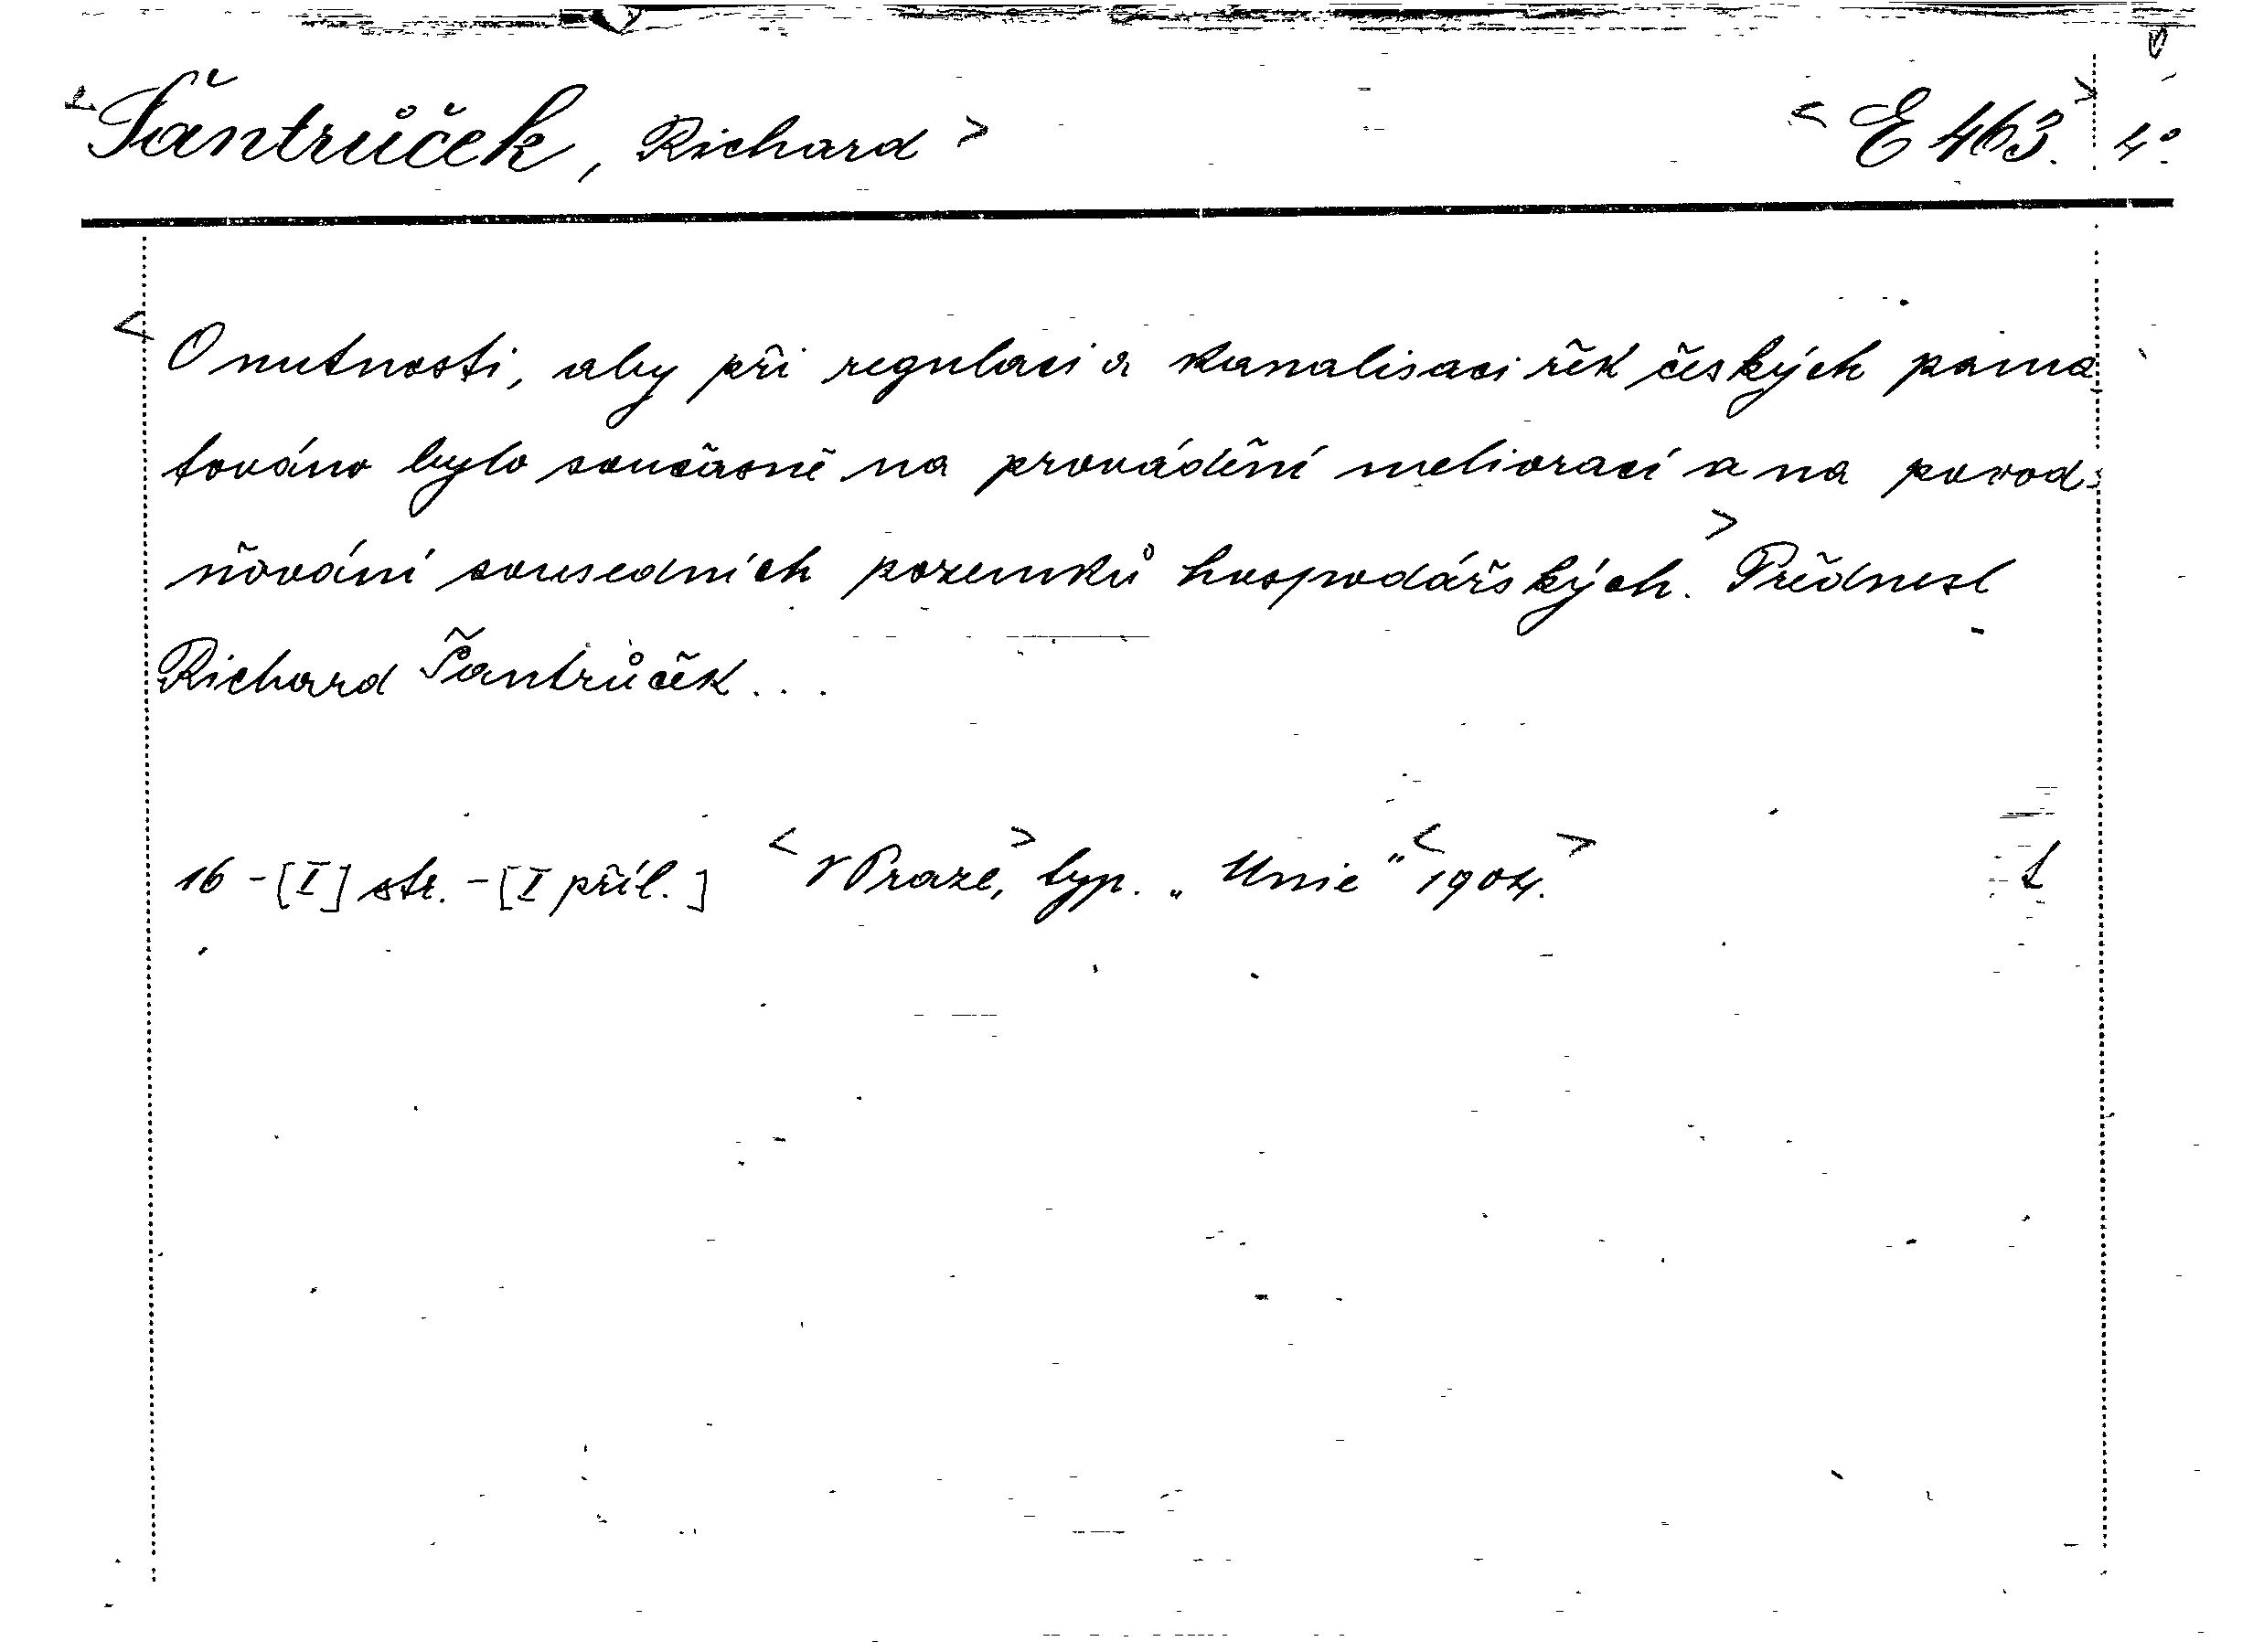 <Šantrůček, Richard> <E 463.> 4°.
<O nutnosti, aby při regulaci a kanalisaci řek českých pama-
továno bylo současně na provádění meliorací a na povod-
ňování sousedních pozemků hospodářských.> Přednesl
Richard Šantrůček...
16 - [I] str. - [I příl.] <V Praze,> typ. „Unie" <1904.> t